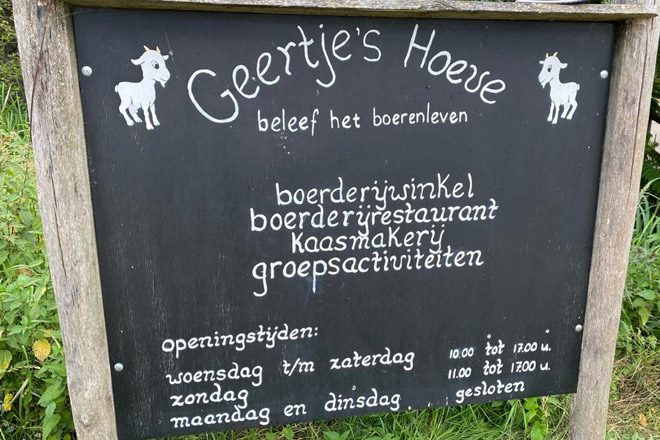 Geertje's Hoeve
beleef het boerenleven
boerderijwinkel
boerderijrestaurant
kaasmakerij
groepsactiviteiten
openingstijden:
woensdag t/m zaterdag 10.00 tot 17.00 u.
zondag 11.00 tot 17.00 u.
maandag en dinsdag gesloten